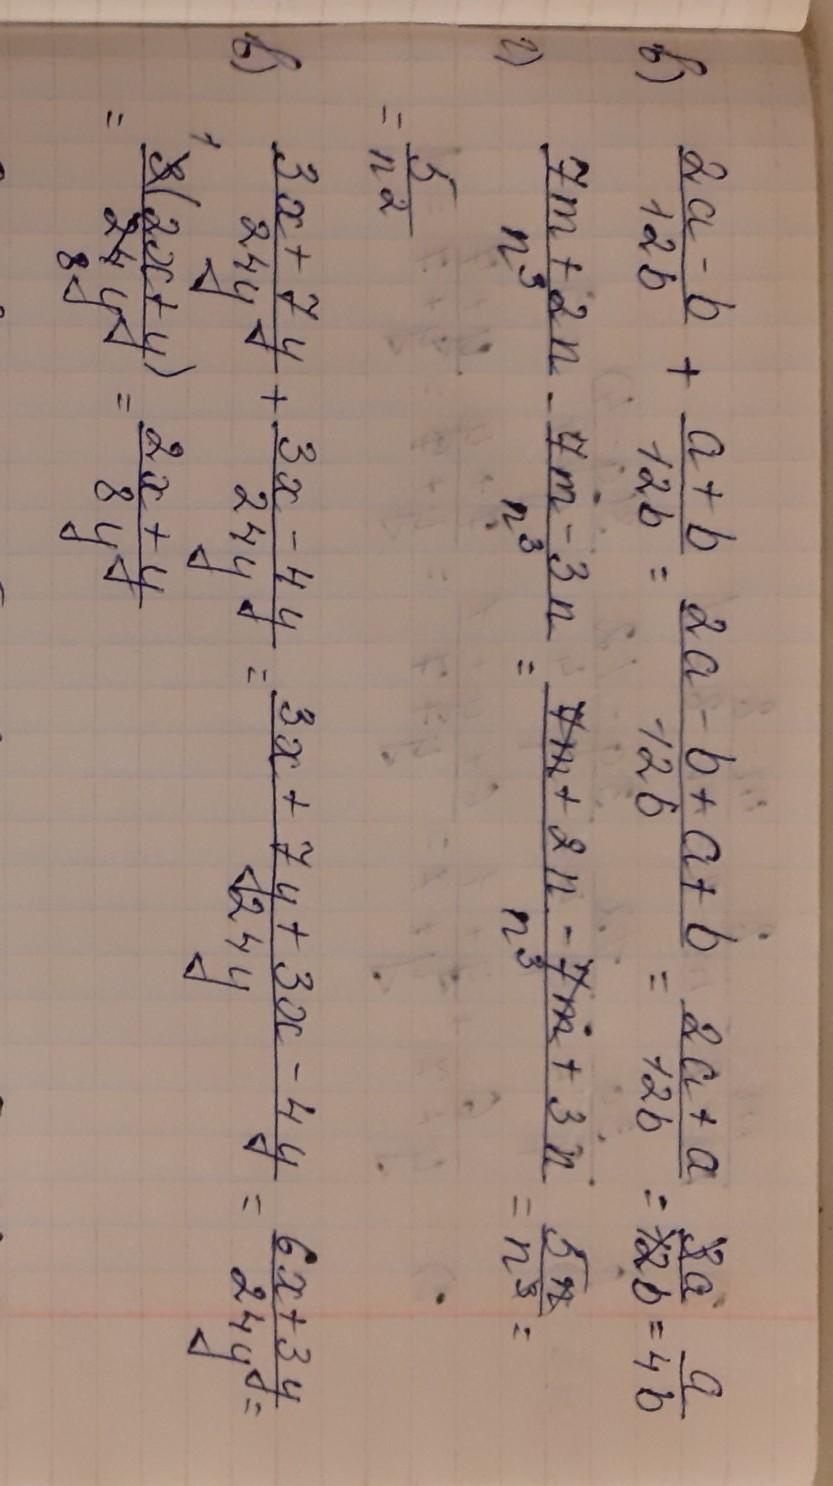 в) (2a - b)/12b + (a + b)/12b = (2a - b + a + b)/12b = (2a + a)/12b = 3a/12b = a/4b
г) (7m + 2n)/n³ - (7m - 3n)/n³ = (7m + 2n - 7m + 3n)/n³ = 5n/n³ =
= 5/n²
в) (3x + 7y)/24y + (3x - 4y)/24y = (3x + 7y + 3x - 4y)/24y = (6x + 3y)/24y =
= 3(2x + y)/24y = (2x + y)/8y